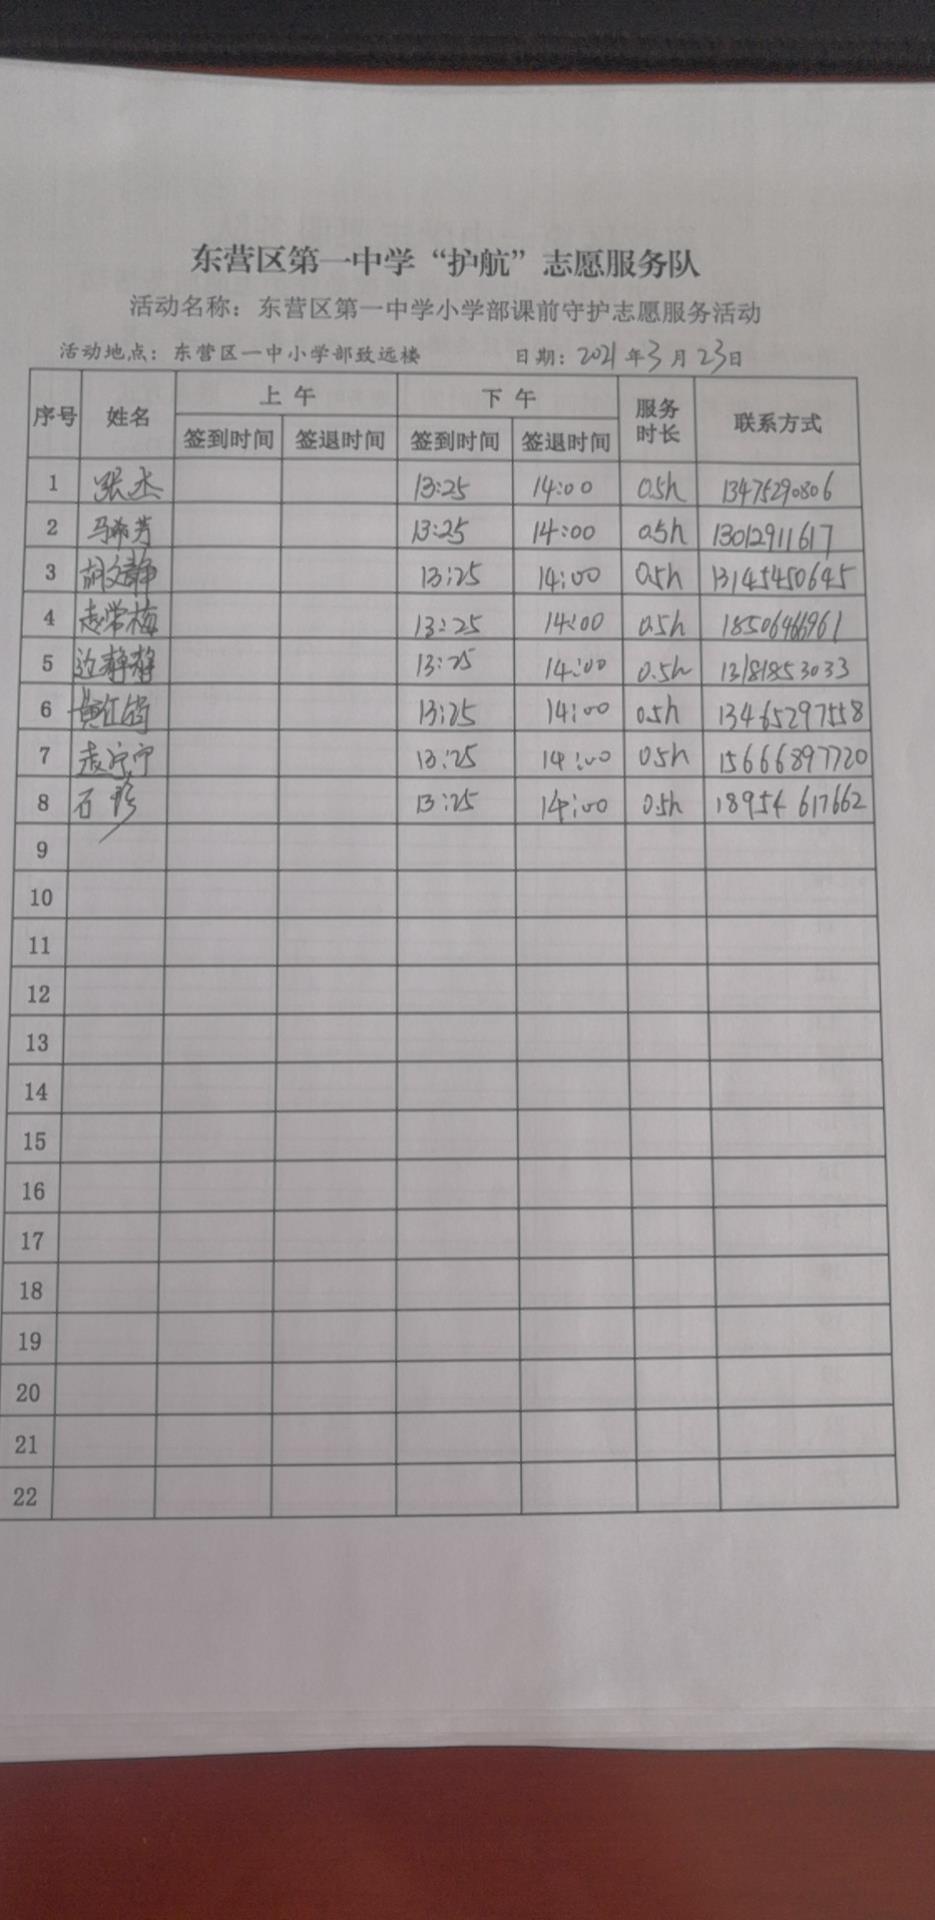 东营区第一中学“护航”志愿服务队
活动名称：东营区第一中学小学部课前守护志愿服务活动
活动地点：东营区一中小学部致远楼 日期：2021年3月23日
序号 姓名 上午 下午 服务时长 联系方式
签到时间 签退时间 签到时间 签退时间
1 张杰 13:25 14:00 0.5h 13475290806
2 马希芳 13:25 14:00 0.5h 13012911617
3 胡文静 13:25 14:00 0.5h 13145450645
4 赵学梅 13:25 14:00 0.5h
5 边静静 13:25 14:00 0.5h 13181853033
6 13:25 14:00 0.5h 13465297558
7 赵宁宁 13:25 14:00 0.5h 15666897720
8 石珍 13:25 14:00 0.5h 18954617662
9
10
11
12
13
14
15
16
17
18
19
20
21
22